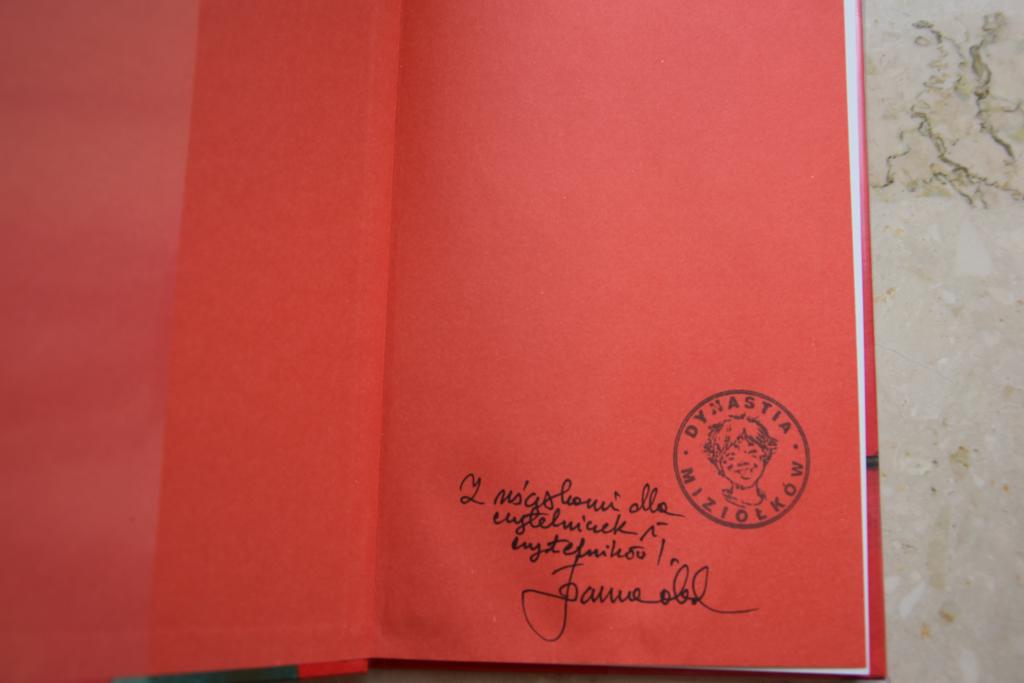 DYNASTIA MIZIOŁKÓW
Z uściskami dla
czytelniczek i
czytelników!
Joanna